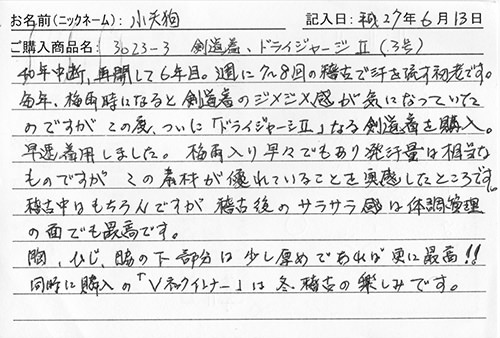 お名前(ニックネーム): 小天狗 記入日: 平成27年6月13日
ご購入商品名: 3023-3 剣道着、ドライジャージⅡ (3号)
40年中断、再開して6年目。週に7〜8回の稽古で汗を流す初老です。
毎年、梅雨時になると剣道着のジメジメ感が気になっていた
のですが この度、ついに「ドライジャージⅡ」なる剣道着を購入。
早速着用しました。 梅雨入り早々でもあり発汗量は相当な
ものですが この素材が優れていることを実感したところです。
稽古中はもちろんですが 稽古後のサラサラ感は体調管理
の面でも最高です。
胸、ひじ、脇の下部分は少し厚めであれば更に最高!!
同時に購入の「Vネックインナー」は冬稽古の楽しみです。